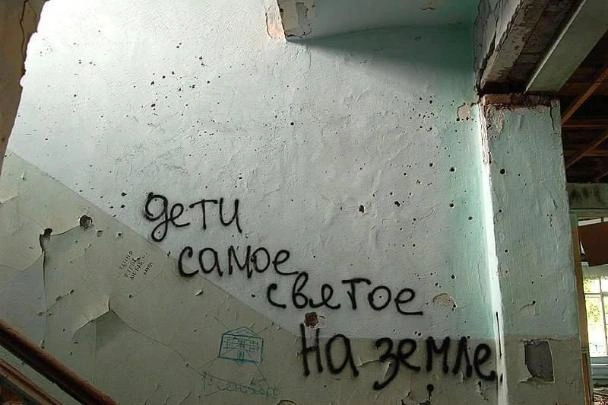 дети
самое
святое
на земле!